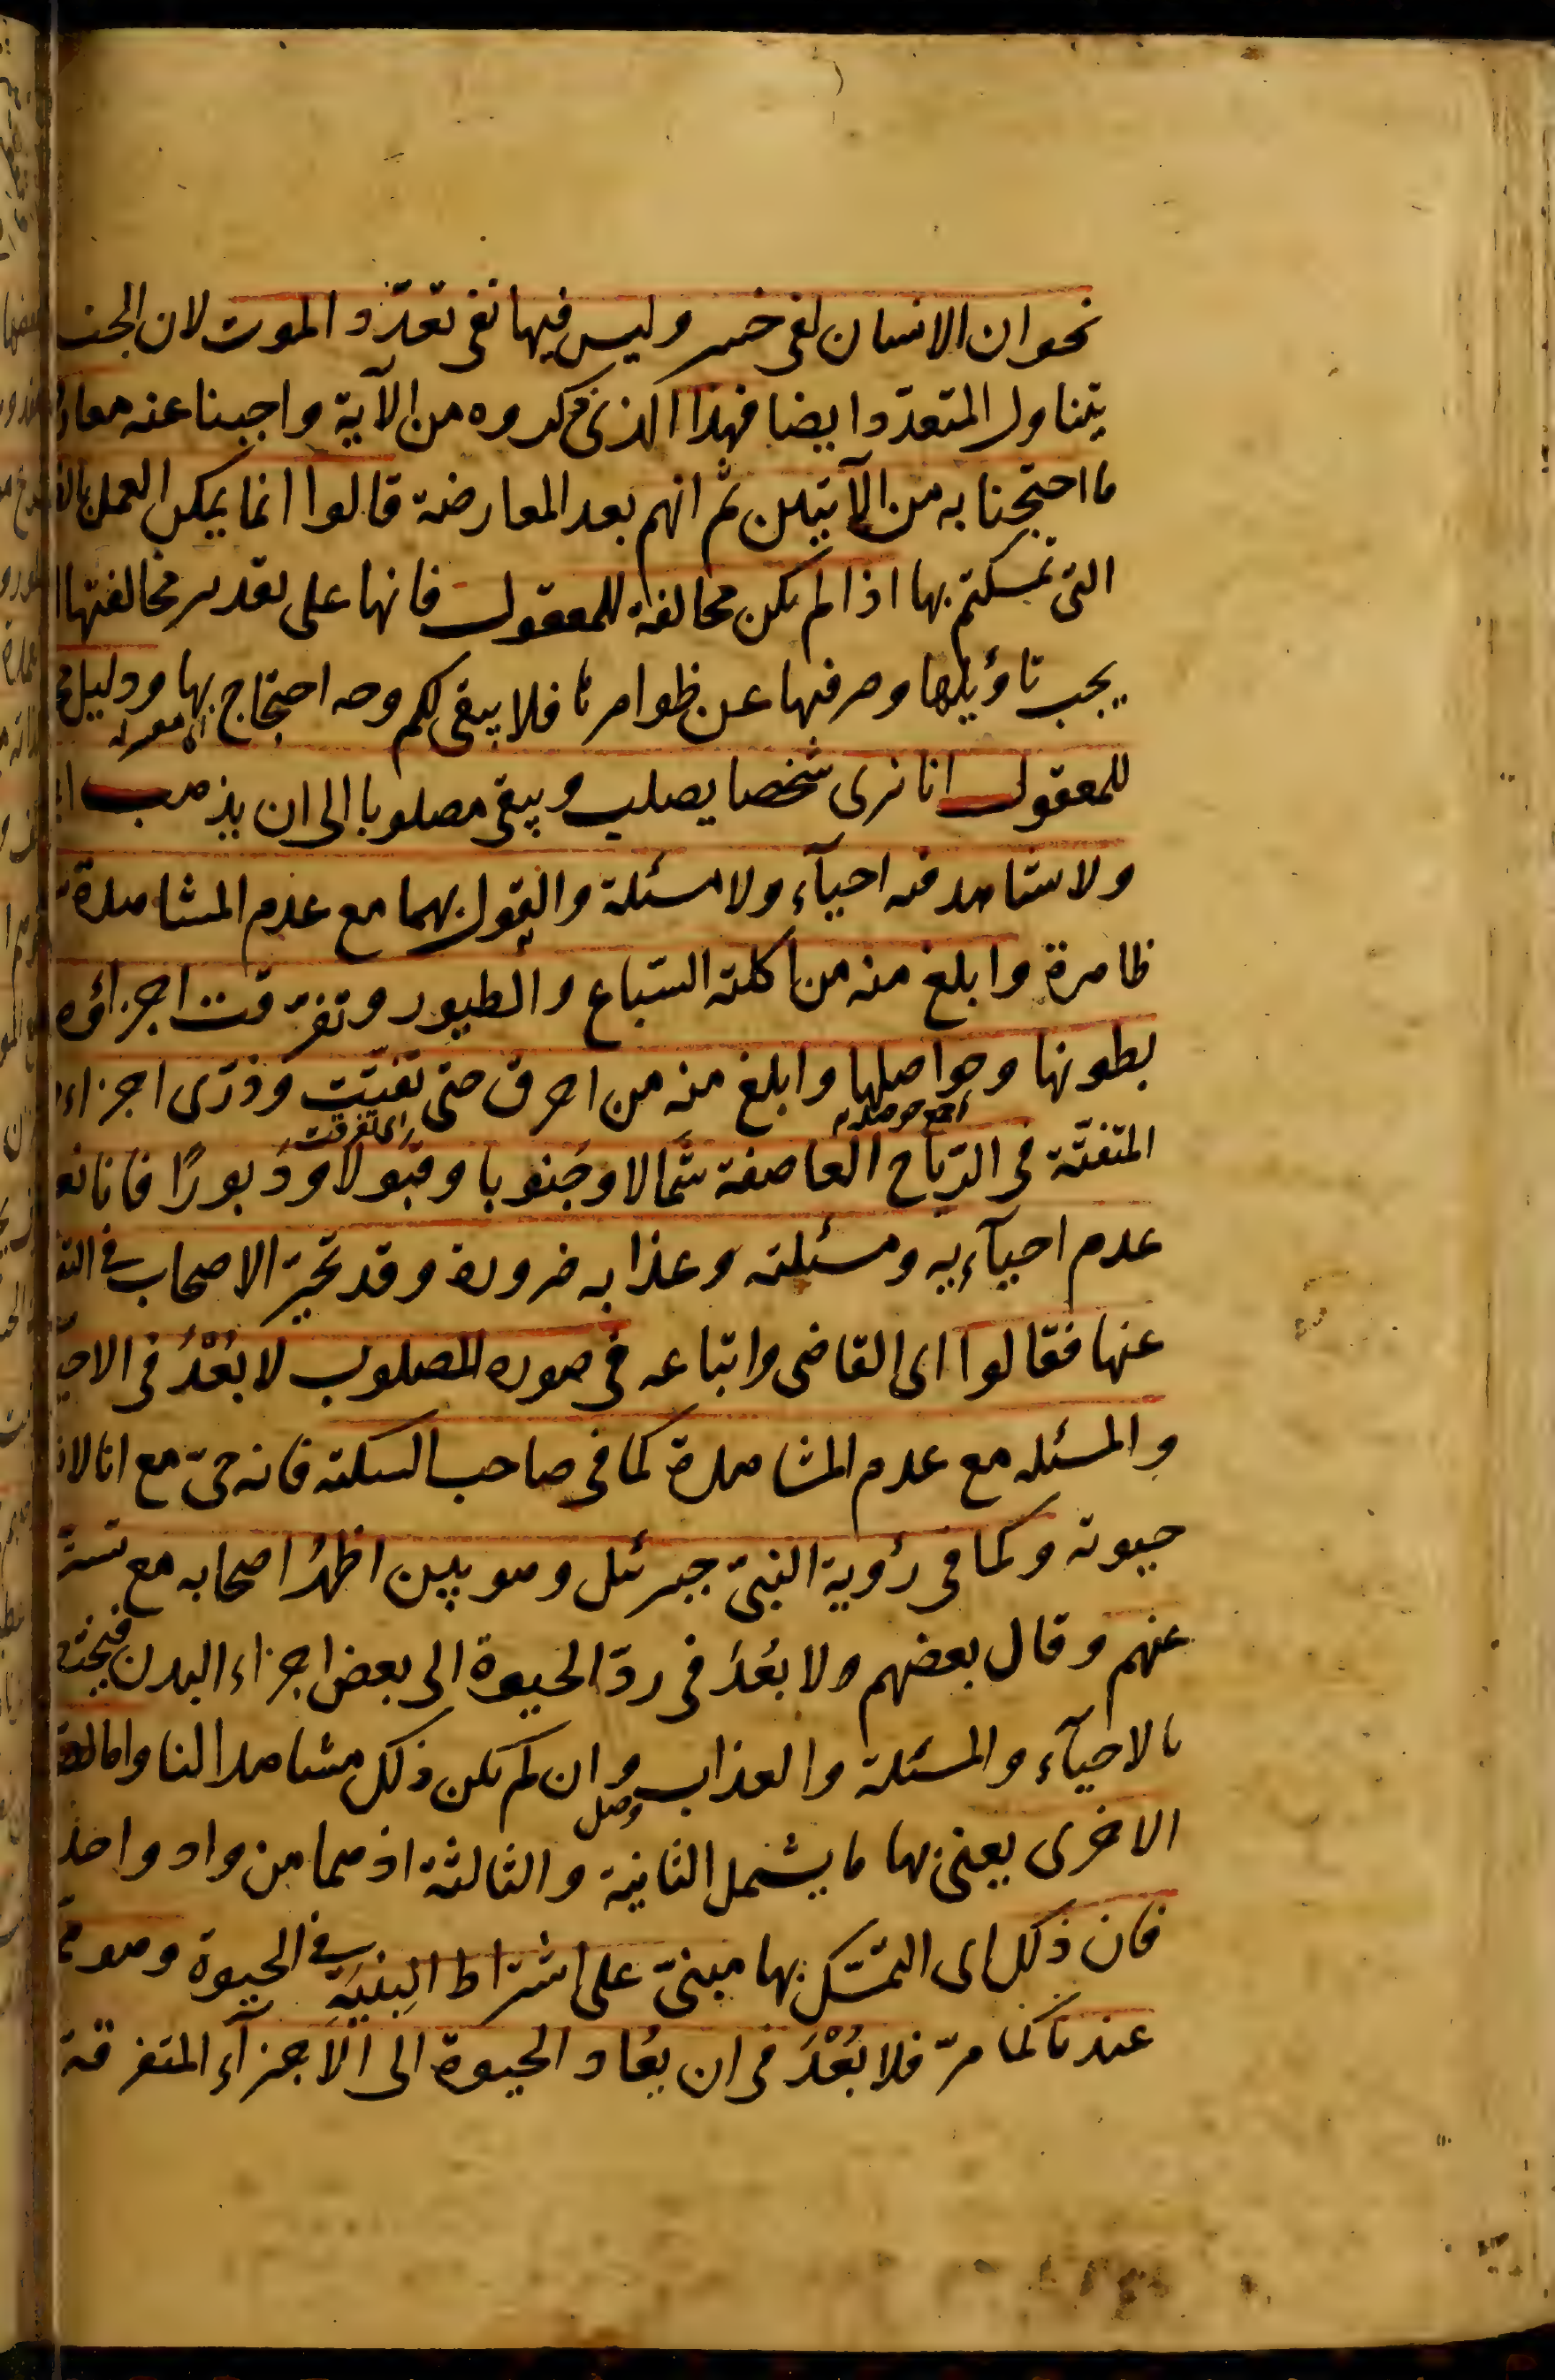 نحو ان الانسان لفى خسر وليس فيها نفى تعدّد الموت لان الجنس
يتناول المتعدّد ايضا فهذا الذى ذكروه من الآية واجبنا عنه
ما احتججنا به من الآيتين ثم انهم بعد المعارضة قالوا انما يمكن العمل
التى تمسكتم بها اذا لم تكن مخالفة للمعقول فانها على تقدير مخالفتها
يجب تاؤيلها وصرفها عن ظواهرها فلا يبقى لكم وجه احتجاج بها ودليل
للمعقول انا نرى شخصا يصلب ويبقى مصلوبا الى ان يذهب
ولا نشاهد فيه احيآء ولا مسئلة والقول بهما مع عدم المشاهدة
ظاهرة وابلغ منه من اكلته السّباع والطيور وتفرّقت اجزاؤه
بطونها وحواصلها وابلغ منه من احرق حتى تفتّت وذرّى اجزاءه
جمع حوصله
اى تفرقت
المتفتّة فى الرّياح العاصفة شمالا وجَنوبا وقَبولا ودَبورًا فانا
عدم احيآءيه ومسئلته وعذابه ضرورة وقد تحيّر الاصحاب فى
عنها فقالوا اى القاضى واتباعه فى صورة المصلوب لا بُعْدَ فى
والمسئله مع عدم المشاهدة كما فى صاحب السكتة فانه حىّ مع انا لا
حيوته وكما فى رؤية النبىّ جبرئيل وهو بين اظهُر اصحابه مع تستّر
عنهم وقال بعضهم ولا بعُدَ فى ردّ الحيوة الى بعض اجزاء البدن
بالاحيآء والمسئلة والعذاب وان لم يكن ذلك مشاهدا لنا واما
وصل
الاخرى يعنى بها ما يشمل الثانية والثالثة اذ هما من واد واحد
فان ذلك اى التمسّك بها مبنىّ على اشتراط البِنيَةِ فى الحيوة وهو
عندنا كما مرّ فلا بُعْدَ فى ان يُعاد الحيوة الى الاجزآء المتفرقة